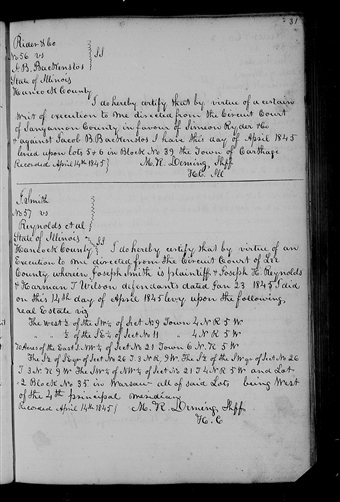 31
Rider & Co
No 56 vs
J. B. Backenstos } SS
State of Illinois
Hancock County
I do hereby certify that by virtue of a certain
writ of execution to me directed from the Circuit Court
of Sangamon County in favour of Simeon Ryder &c
& against Jacob B. Backenstos I have this day of April 1845
levied upon lots 5 & 6 in Block No 39 the Town of Carthage
Recorded April 14th 1845 } M. R. Deming, Shff
H.C. Ill
J. Smith
No 57 vs
Reynolds et al
State of Illinois } SS
Hancock County I do hereby certify that by virtue of an
Execution to me directed from the Circuit Court of
County wherein Joseph Smith is plaintiff & Joseph H. Reynolds
& Harman T Wilson defendants dated Jan 23 1845 I did
on this 14th day of April 1845 levy upon the following
real Estate viz
The West ½ of the SW¼ of Sect No 9 Town 4 N R 5 W
" " ½ of the SE¼ of Sect No 11 " 4 N. R 5 W
Acres of the East ½ NW¼ of Sect No 21 Town 6 N. R 5 W
The S½ of SE qr of Sect No 26 T 3 N R 9 W. The S½ of the SW qr of Sect No 26
T 3 N. R 9 W The SW¼ of NW¼ of Sect No 21 T 4 N R 5 W and Lot
2 Block No 35 in Warsaw all of said Lots being West
of the 4th principal meridian
Recorded April 14th 1845 } M. R. Deming, Shff.
H. C